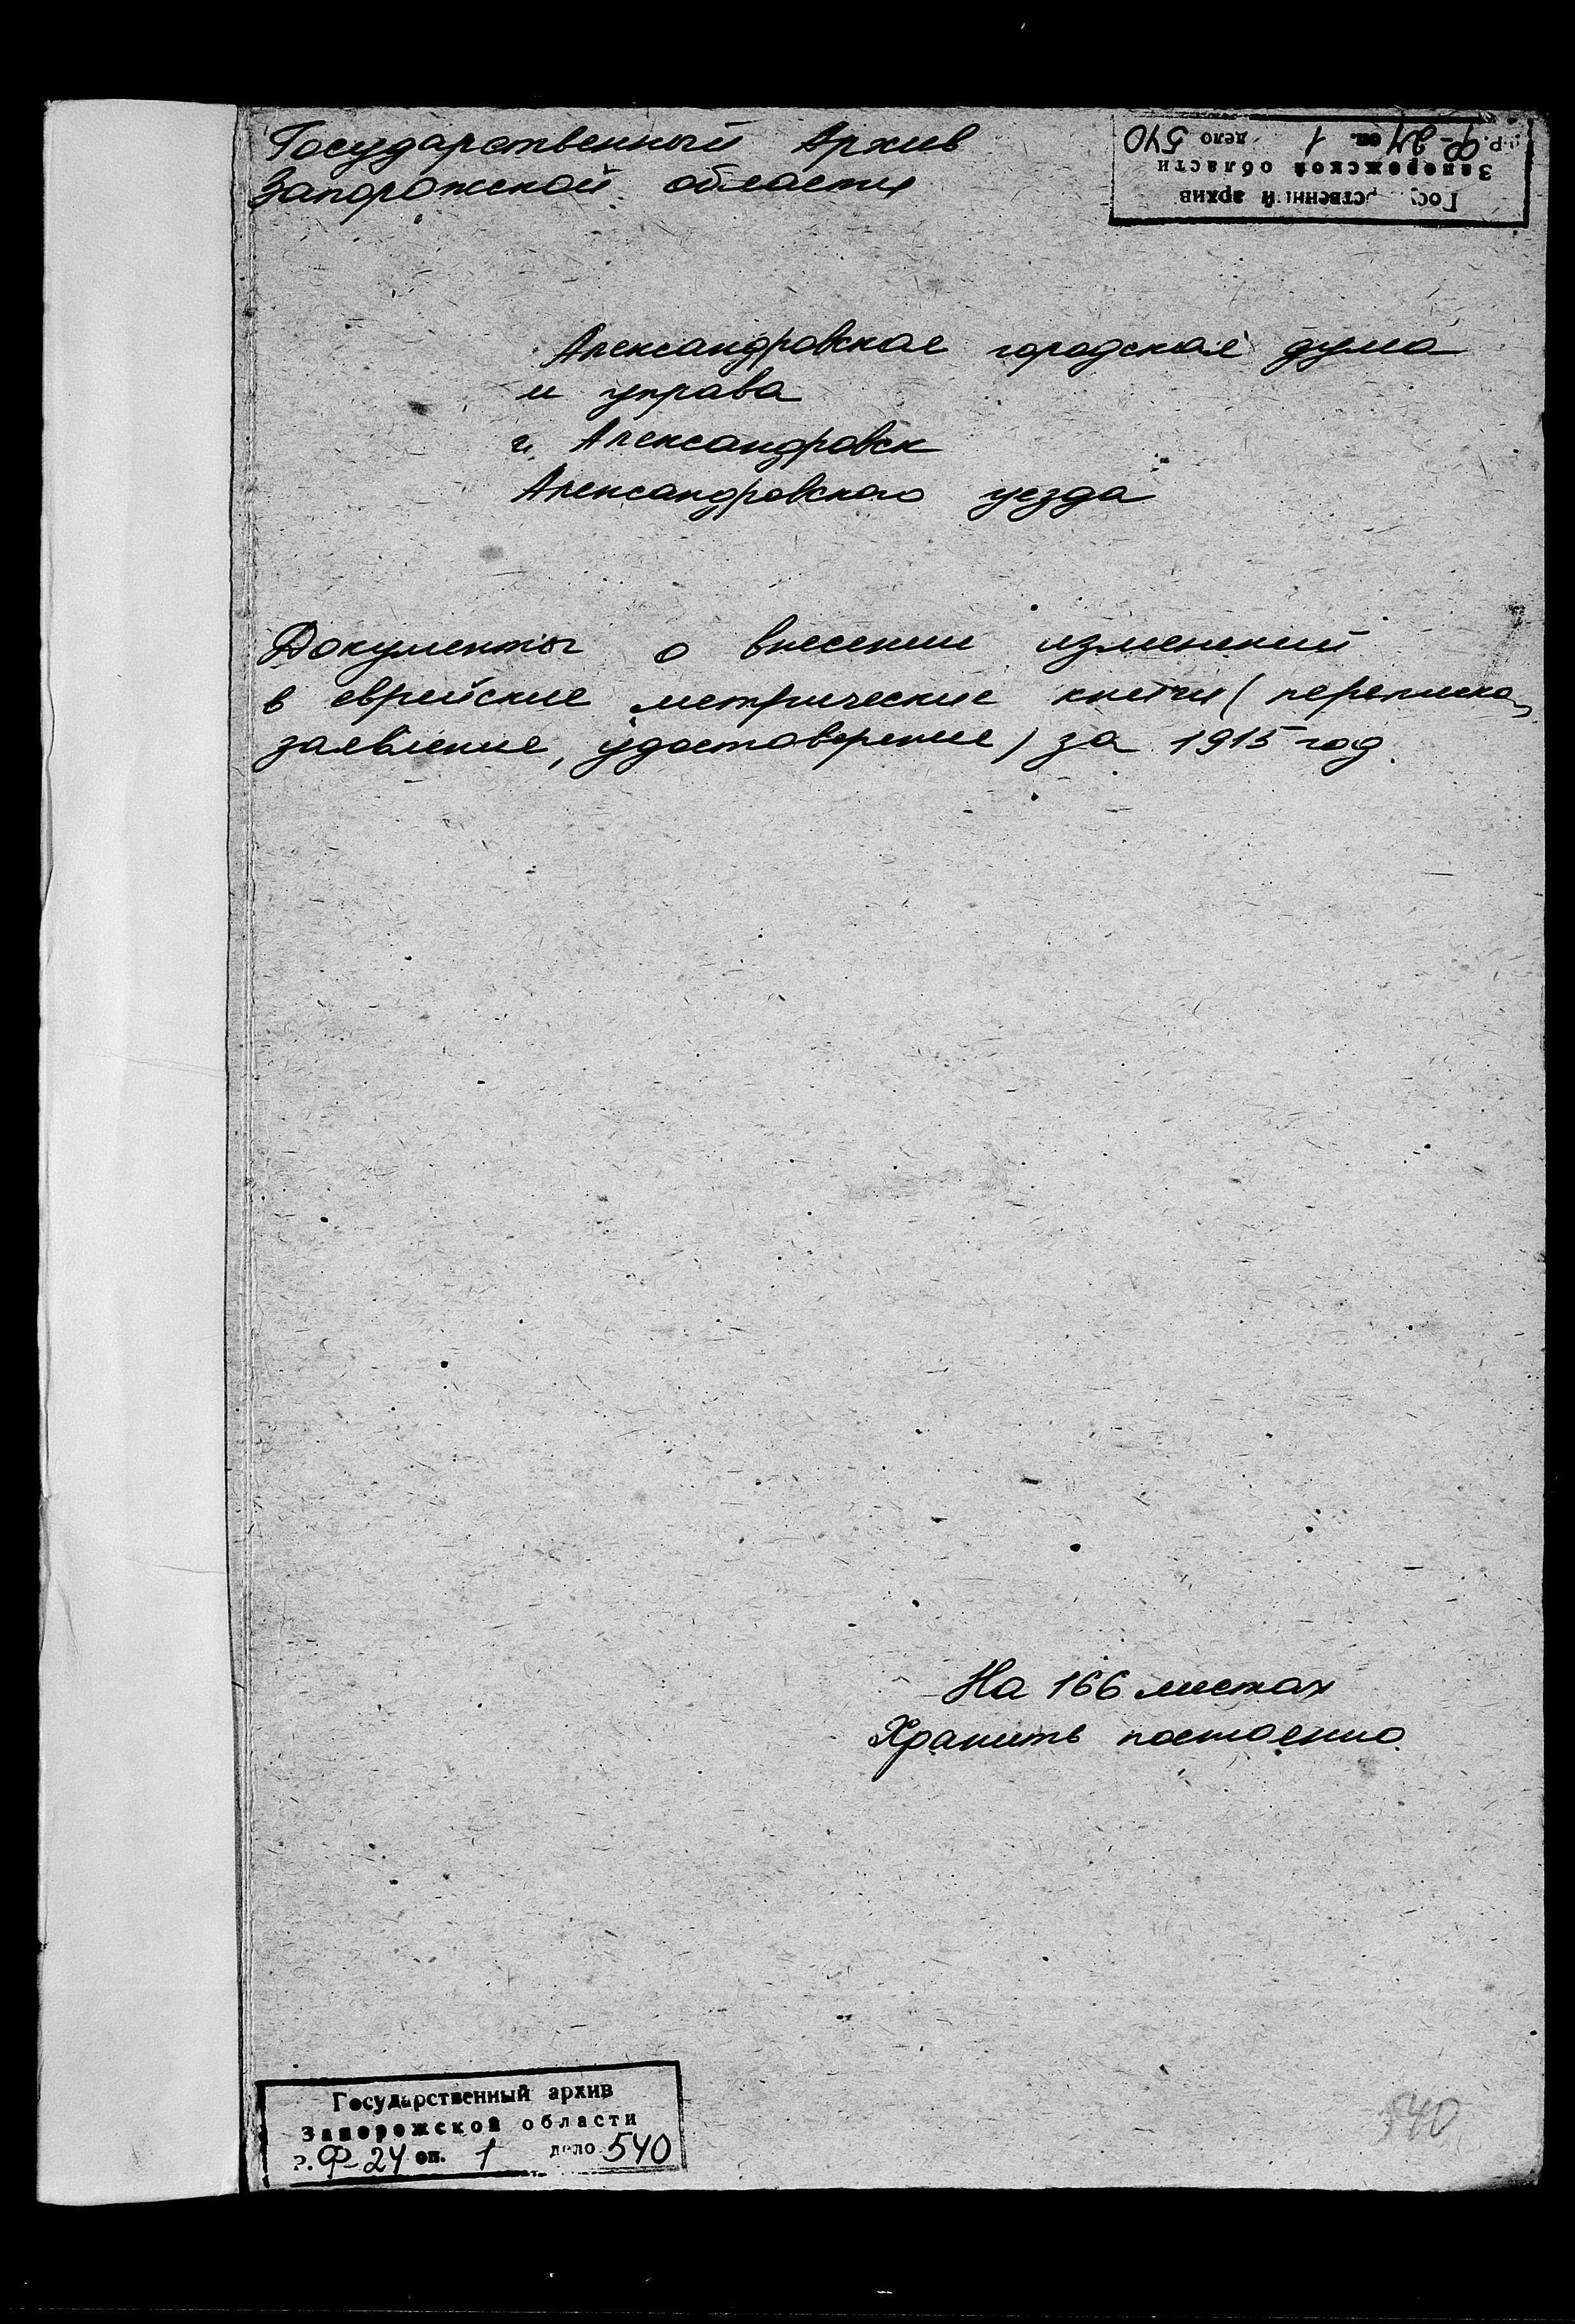 Государственный Архив
Запорожской области
Государственный архив
Запорожской области
Ф-24 оп. 1 дело 540
Александровская городская дума
и управа
г. Александровск
Александровского уезда
Документы о внесении изменений
в еврейские метрические книги (переписка,
заявление, удостоверение) за 1915 год.
На 166 листах
Хранить постоянно.
Государственный архив
Запорожской области
Р. Ф-24 оп. 1 дело 540
540